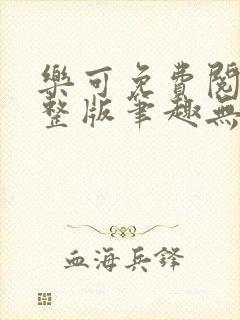 樂可免費閱
整版筆趣無
血海兵鋒